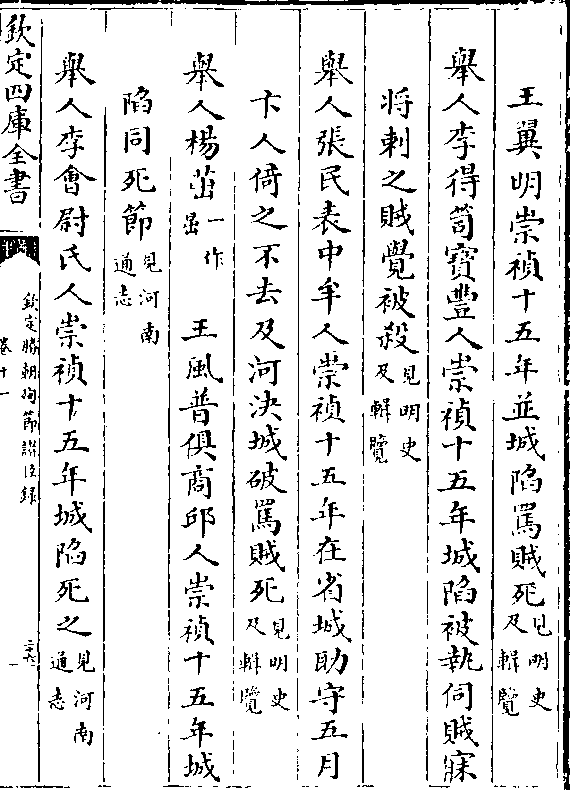 王翼明崇禎十五年並城陷罵賊死見明史及輯覽
舉人李得笥寶豐人崇禎十五年城陷被執伺賊寐
將刺之賊覺被殺見明史及輯覽
舉人張民表中牟人崇禎十五年在省城助守五月
卞人倚之不去及河決城破罵賊死見明史及輯覽
舉人楊茁一作王風普俱商邱人崇禎十五年城
陷同死節見河南通志
舉人李會尉氏人崇禎十五年城陷死之見河南通志
欽定四庫全書
欽定勝朝殉節諸臣錄
卷十一